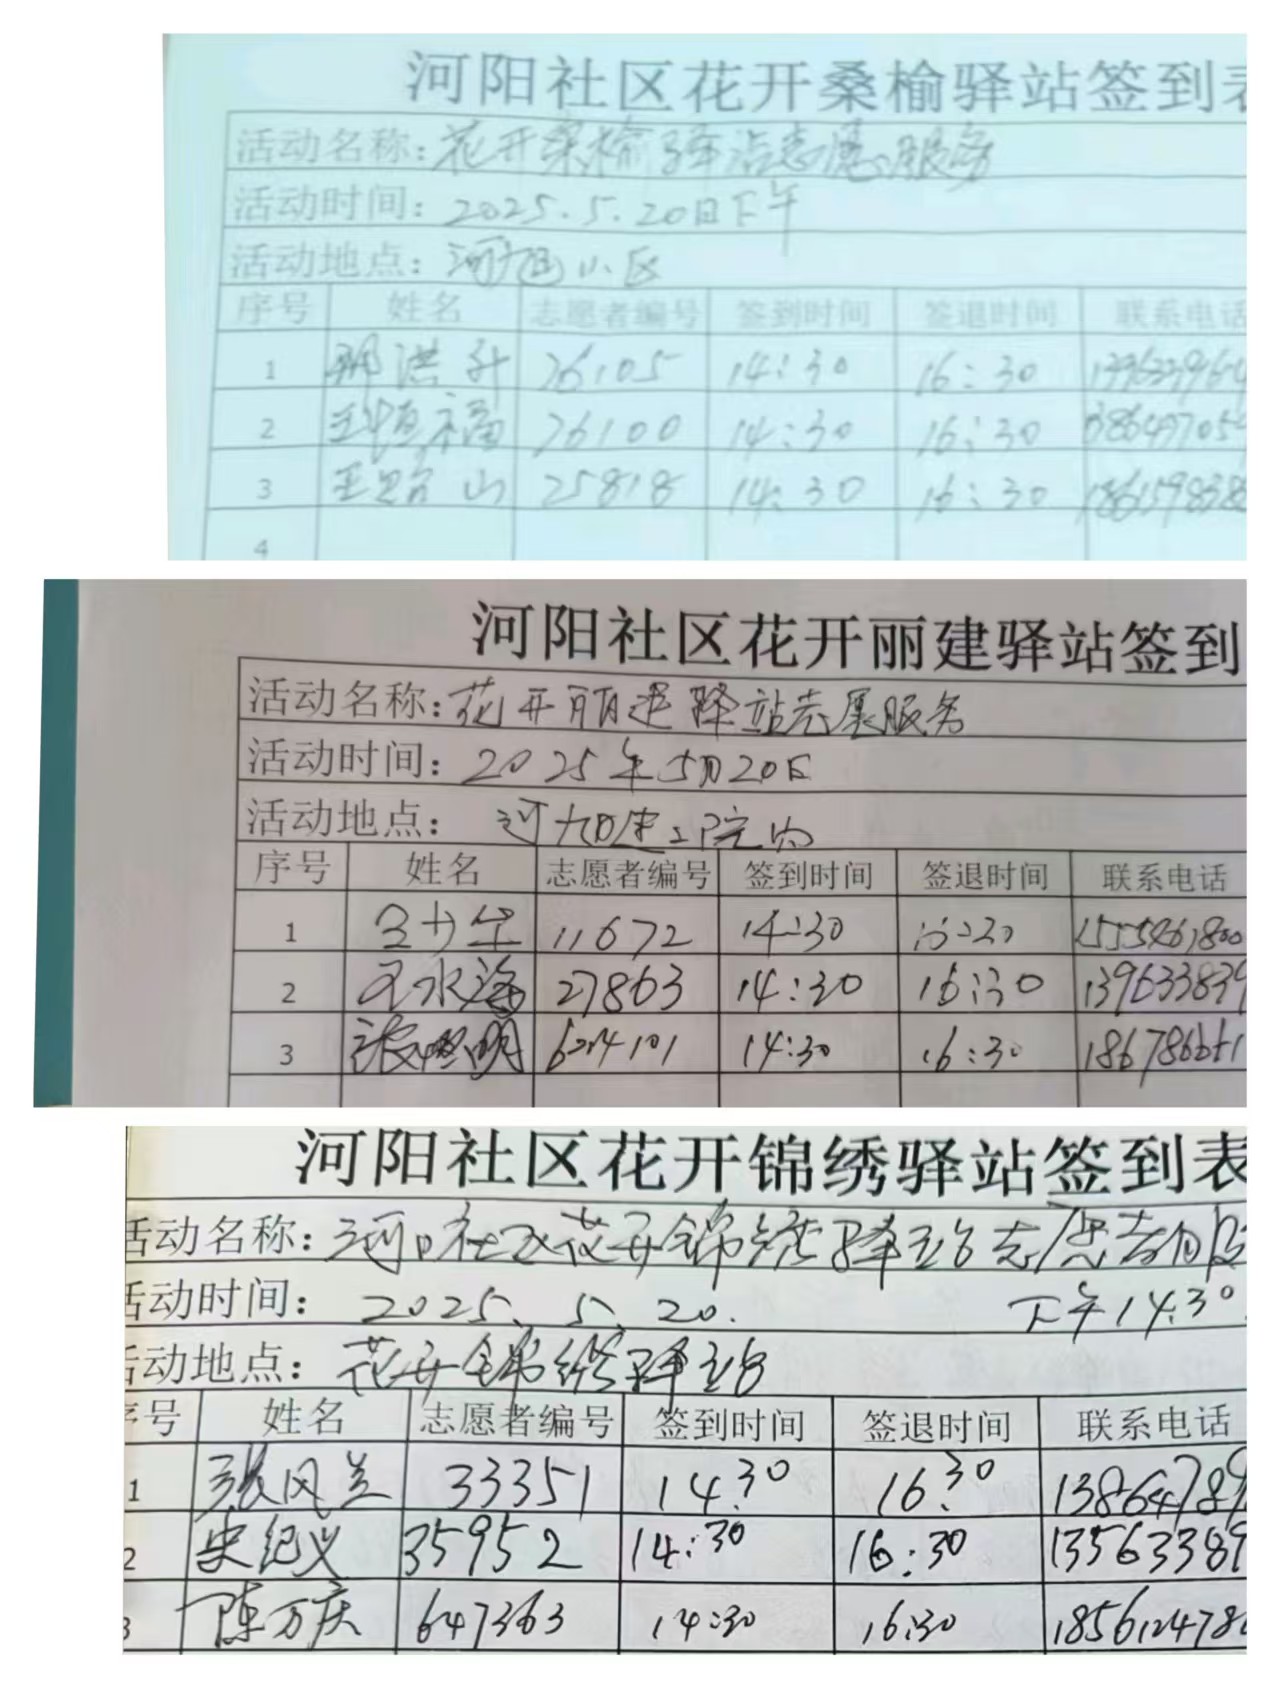 河阳社区花开桑榆驿站签到表
活动名称：花开桑榆驿站志愿服务
活动时间：2025.5.20日下午
活动地点：河旭小区
序号 姓名 志愿者编号 签到时间 签退时间 联系电话
1 洪升 26105 14:30 16:30
2 王恒福 26100 14:30 16:30
3 王 山 25818 14:30 16:30
4
河阳社区花开丽建驿站签到
活动名称：花开丽建驿站志愿服务
活动时间：2025年5月20日
活动地点： 建工院内
序号 姓名 志愿者编号 签到时间 签退时间 联系电话
1 11672 14:30
2 王永海 27863 14:30 16:30 139633839
3 张明 14:30 16:30
河阳社区花开锦绣驿站签到表
活动名称：河阳社区花开锦绣驿站志愿者
活动时间：2025.5.20. 下午14:30
活动地点：花开锦绣驿站
序号 姓名 志愿者编号 签到时间 签退时间 联系电话
1 张风兰 33351 14:30 16:30 13864789
2 史纪义 35952 14:30 16:30 13563389
3 陈万庆 647363 14:30 16:30